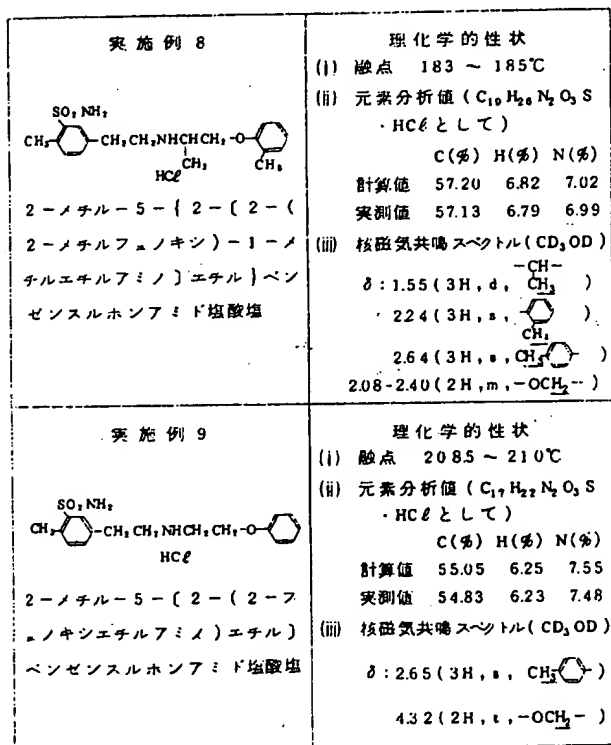 実施例 8
SO₂NH₂
CH₃-　-CH₂CH₂NHCHCH₂-O-
CH₃　CH₃
HCl
2-メチル-5-{2-〔2-(
2-メチルフェノキシ)-1-メ
チルエチルアミノ〕エチル}ベン
ゼンスルホンアミド塩酸塩
理化学的性状
(i) 融点 183 ~ 185℃
(ii) 元素分析値 (C₁₉H₂₆N₂O₃S
・HClとして)
C(%) H(%) N(%)
計算値 57.20 6.82 7.02
実測値 57.13 6.79 6.99
(iii) 核磁気共鳴スペクトル(CD₃OD)
-CH-
δ:1.55(3H, d, CH₃ )
2.24(3H, s, )
CH₃
2.64(3H, s, CH₃- -)
2.08-2.40(2H, m, -OCH₂-)
実施例 9
SO₂NH₂
CH₃-　-CH₂CH₂NHCH₂CH₂-O-
HCl
2-メチル-5-〔2-(2-フ
ェノキシエチルアミノ)エチル〕
ベンゼンスルホンアミド塩酸塩
理化学的性状
(i) 融点 208.5 ~ 210℃
(ii) 元素分析値 (C₁₇H₂₂N₂O₃S
・HClとして)
C(%) H(%) N(%)
計算値 55.05 6.25 7.55
実測値 54.83 6.23 7.48
(iii) 核磁気共鳴スペクトル(CD₃OD)
δ:2.65(3H, s, CH₃- -)
4.32(2H, t, -OCH₂-)